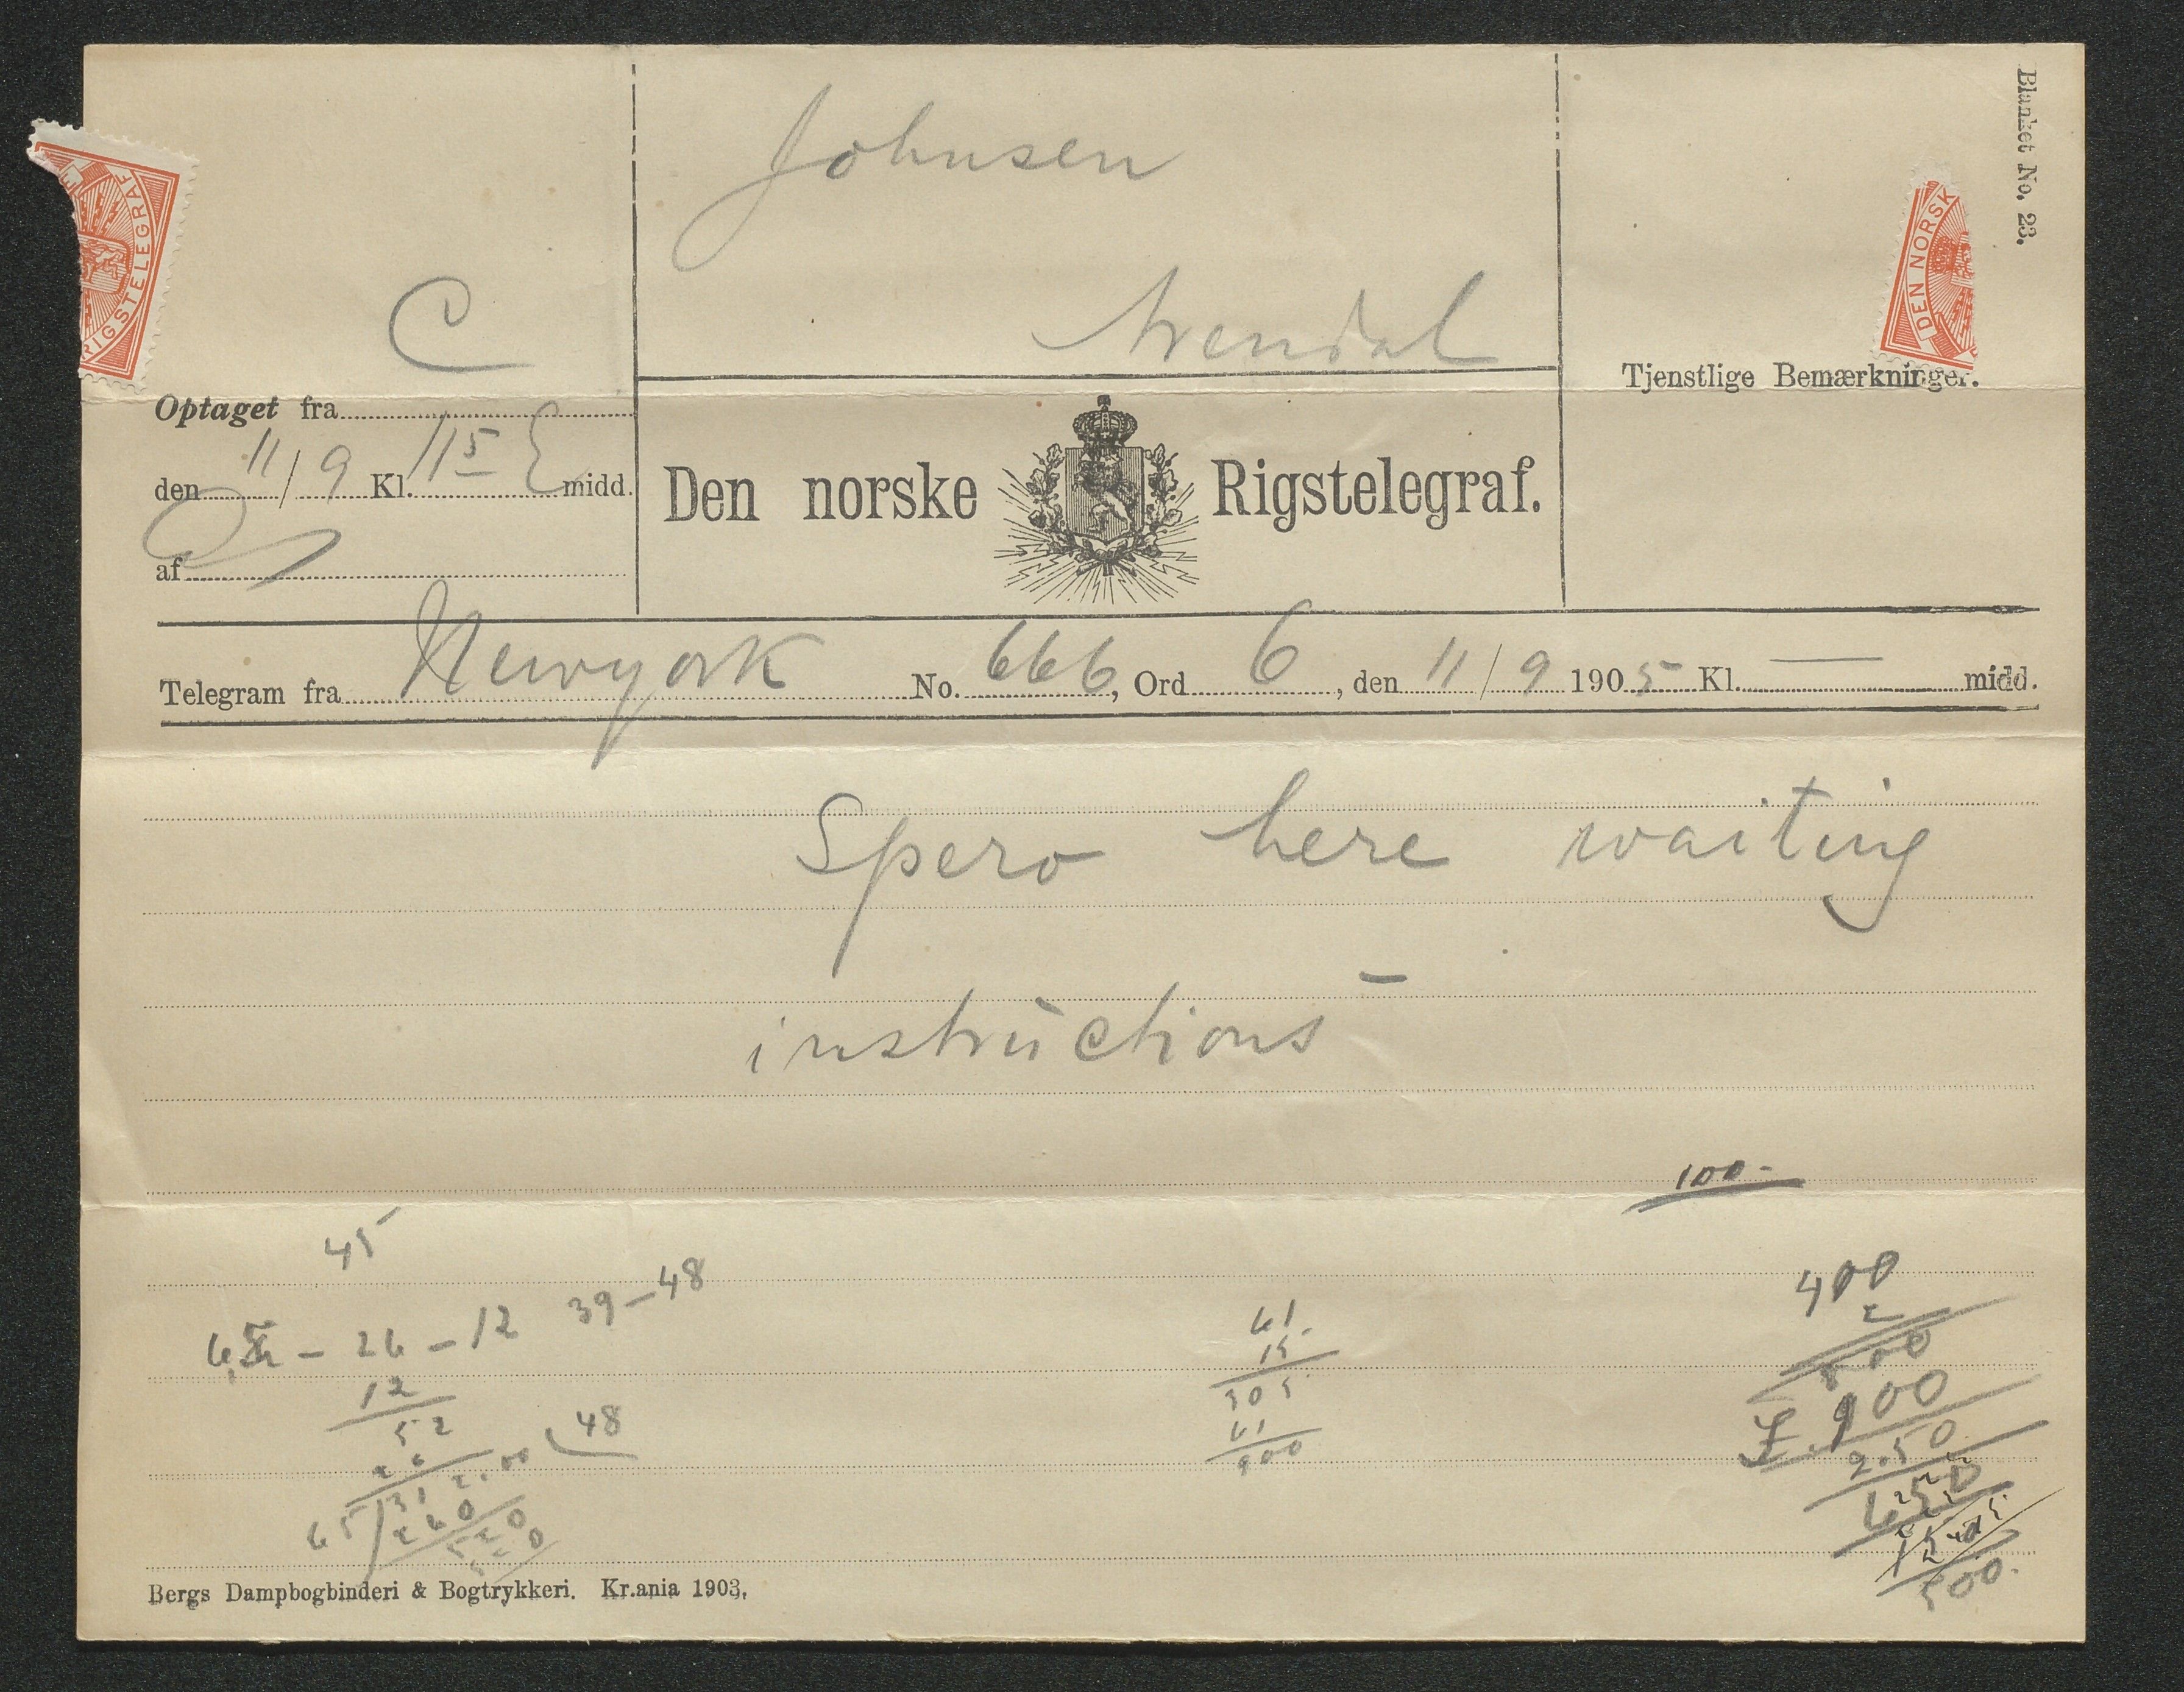 Blanket No. 23.
Johnsen
Arendal
RIGSTELEGRAF
DEN NORSK
C
Tjenstlige Bemærkninger.
Optaget fra
den 11/9 Kl. 11 5 E midd.
af
Den norske Rigstelegraf.
Telegram fra Newyork No. 666, Ord 6, den 11/9 1905 Kl. — midd.
Spero here waiting
instructions
100-
45
39-48
- 26 - 12
12
52
48
61
15
305
61
400
2
800
£. 900
2.50
650
500.
Bergs Dampbogbinderi & Bogtrykkeri. Kr.ania 1903.